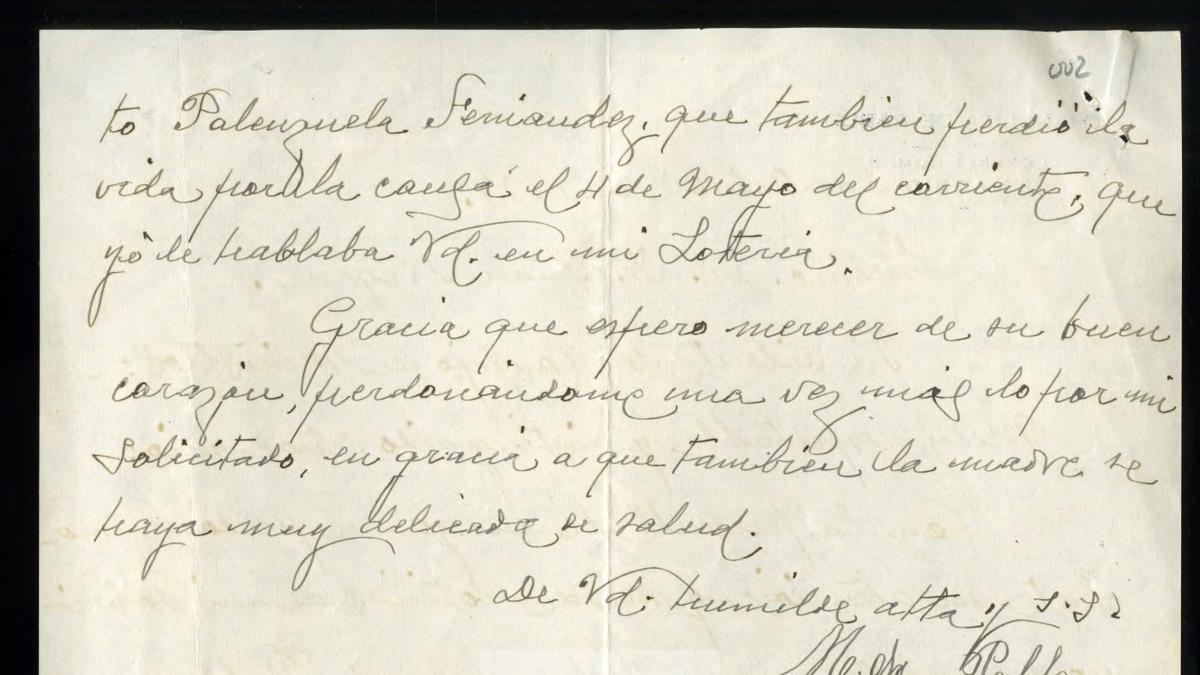 002
to Palenzuela Fernandez, que tambien perdió la
vida por la causa el 4 de Mayo del corriente, que
yó le hablaba Vd. en mi Loteria.
Gracia que espero merecer de su buen
corazón, perdonándome una vez más lo por mi
Solicitado, en gracia a que tambien la madre se
haya muy delicada de salud.
De Vd. humilde atta y S.S.